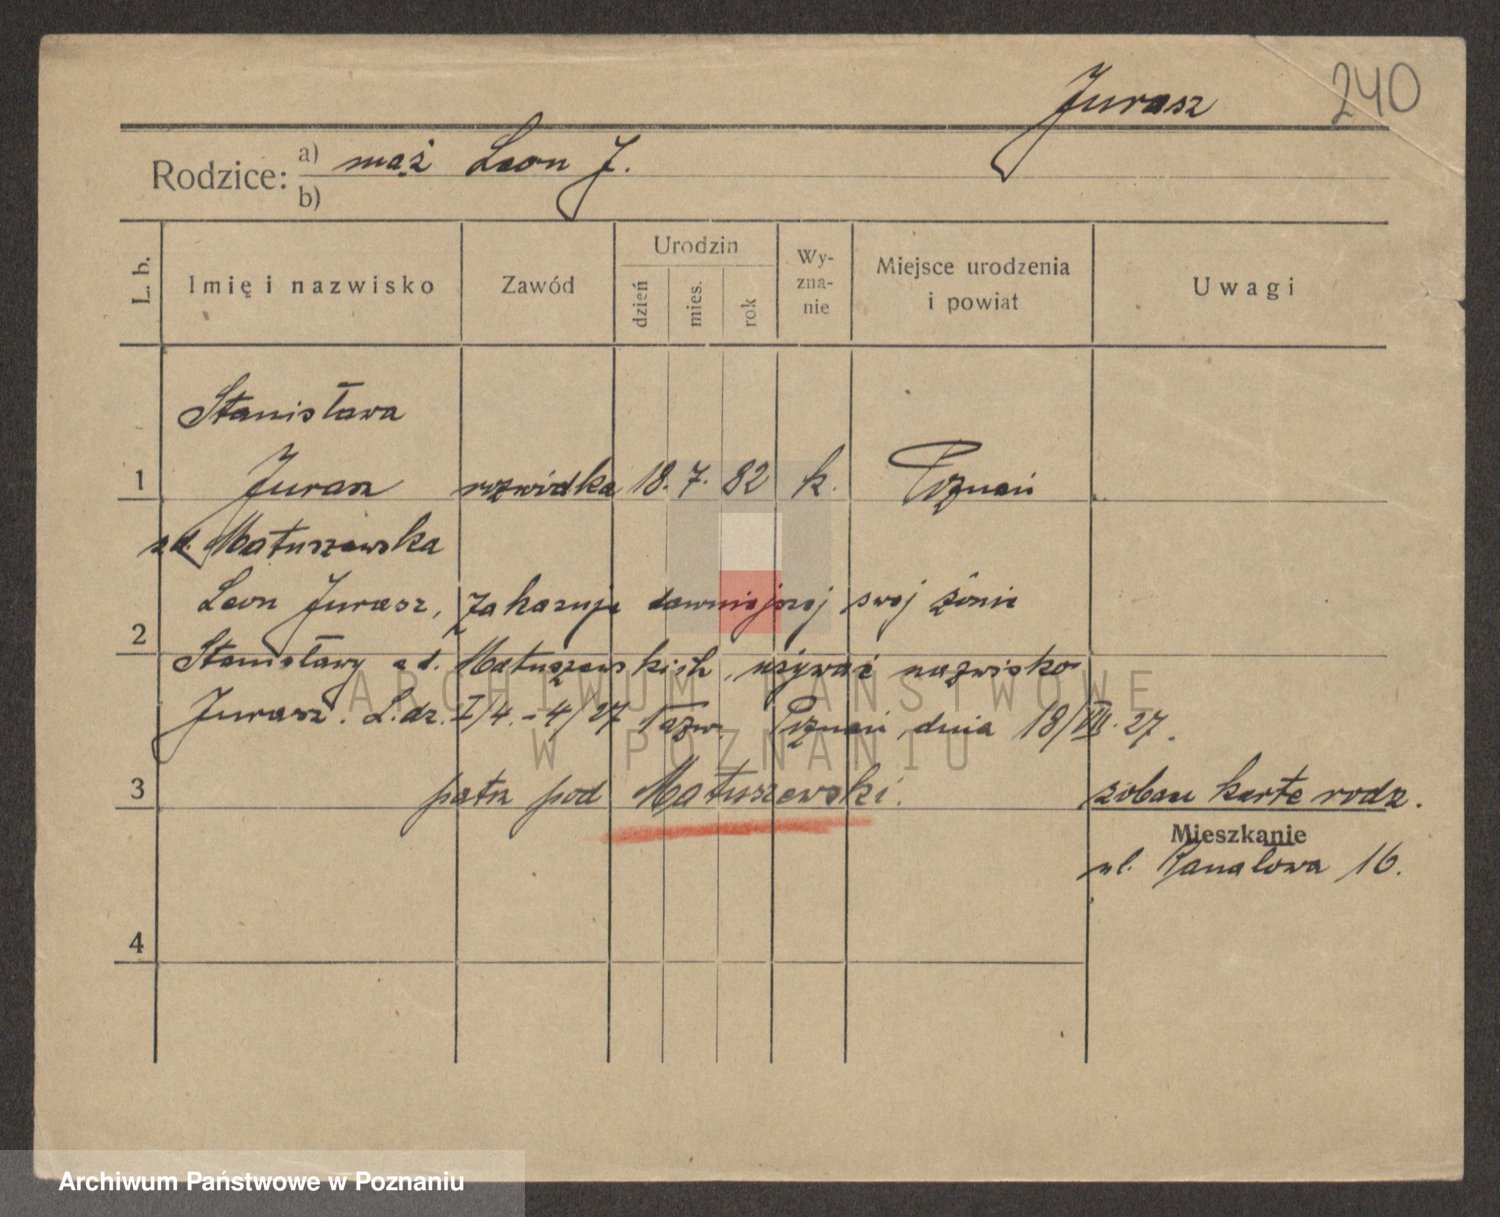 Jurasz
240
Rodzice: a) mąż Leon J.
b)
L. b.
Imię i nazwisko
Zawód
Urodzin
dzień
mies.
rok
Wy-
zna-
nie
Miejsce urodzenia
i powiat
Uwagi
Stanisława
1 Jurasz rozwódka 18. 7. 82 k. Poznań
zd. Matuszewska
Leon Jurasz, zakazuje dawniejszej swej żonie
2
Stanisławy zd. Matuszewskich, używać nazwisko
Jurasz. L.dz. I/4.-4/27 Poznań, dnia 18/VII.27.
3 patrz pod Matuszewski. zobacz kartę rodz.
Mieszkanie
ul. Kanałowa 16.
4
ARCHIWUM PAŃSTWOWE
W POZNANIU
Archiwum Państwowe w Poznaniu